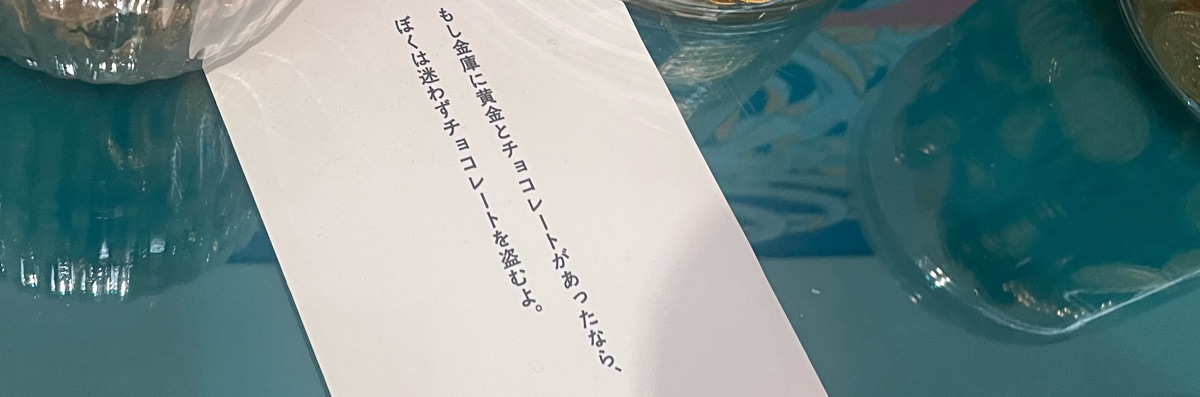 もし金庫に黄金とチョコレートがあったなら、
ぼくは迷わずチョコレートを盗むよ。